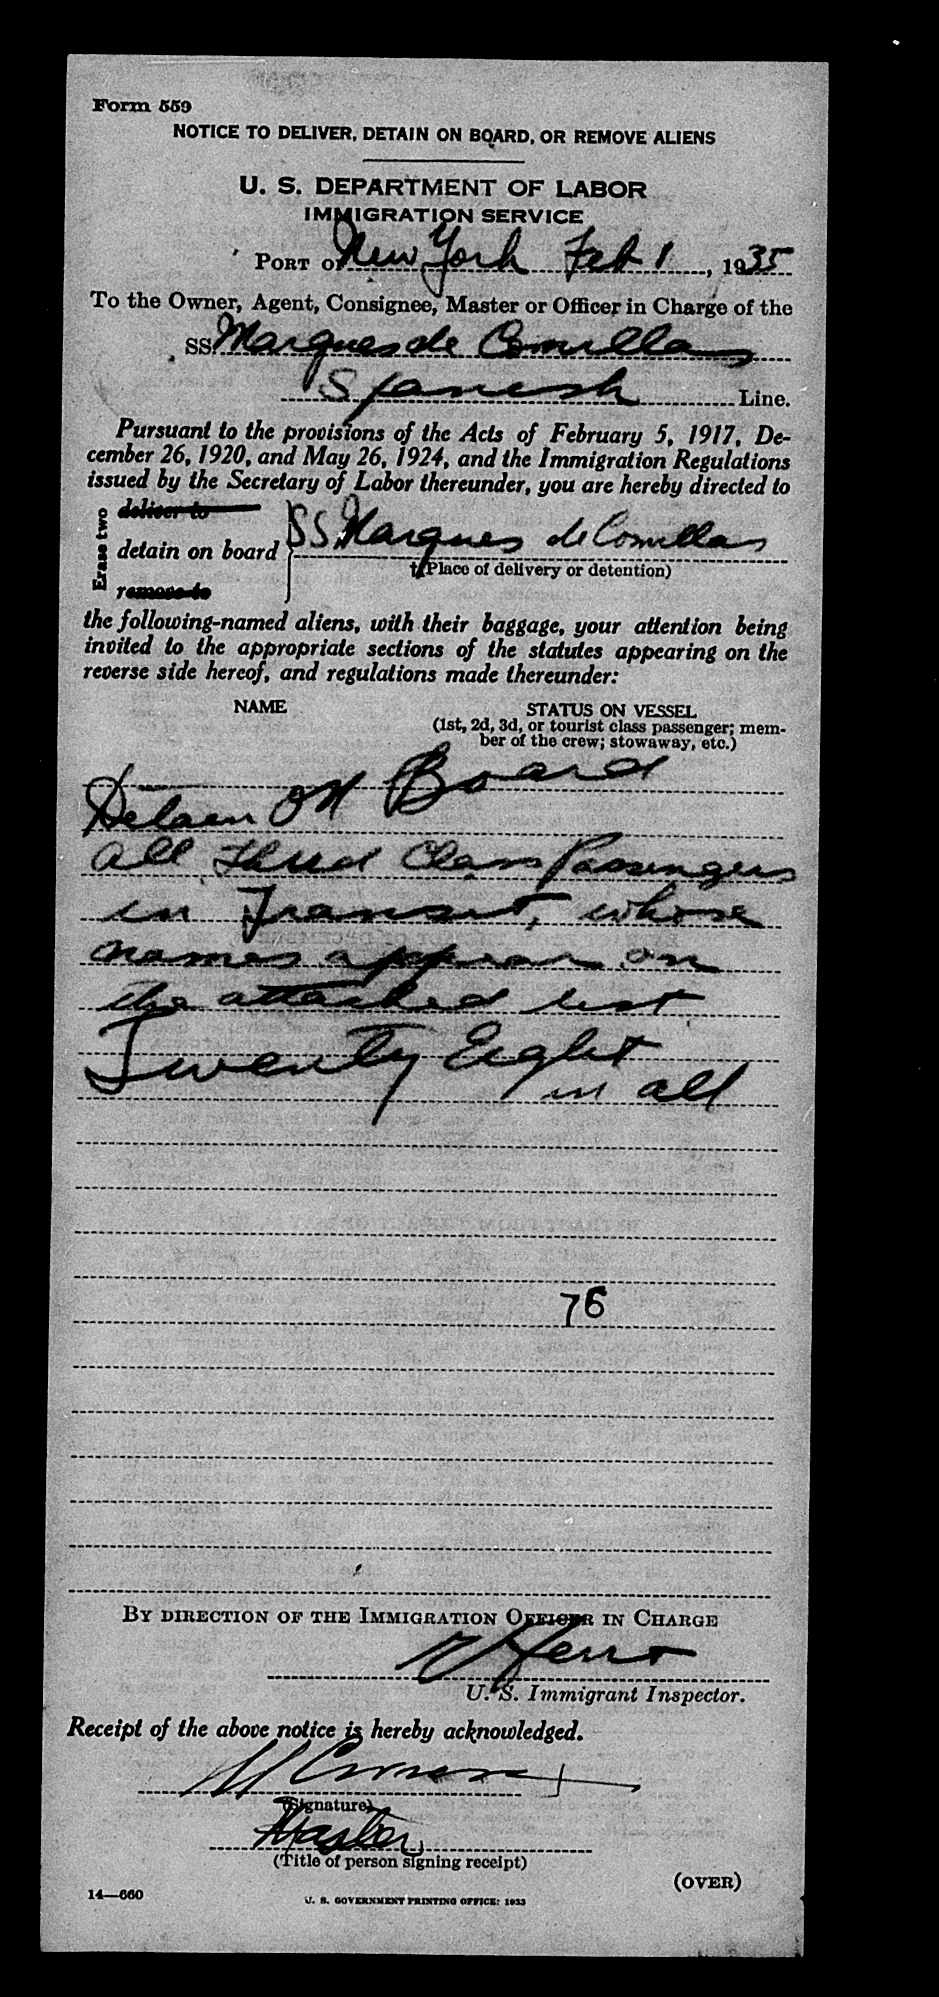 Form 559
NOTICE TO DELIVER, DETAIN ON BOARD, OR REMOVE ALIENS
U. S. DEPARTMENT OF LABOR
IMMIGRATION SERVICE
PORT of New York Feb 1, 1935
To the Owner, Agent, Consignee, Master or Officer in Charge of the
SS Marques de Comillas
Spanish Line.
Pursuant to the provisions of the Acts of February 5, 1917, De-
cember 26, 1920, and May 26, 1924, and the Immigration Regulations
issued by the Secretary of Labor thereunder, you are hereby directed to
Erase two
deliver to
detain on board SS. Marques de Comillas
†(Place of delivery or detention)
remove to
the following-named aliens, with their baggage, your attention being
invited to the appropriate sections of the statutes appearing on the
reverse side hereof, and regulations made thereunder:
NAME STATUS ON VESSEL
(1st, 2d, 3d, or tourist class passenger; mem-
ber of the crew; stowaway, etc.)
Detain on Board
all Third Class Passengers
in Transit, whose
names appear on
the attached list
Twenty Eight
in all
76
BY DIRECTION OF THE IMMIGRATION OFFICER IN CHARGE
U. S. Immigrant Inspector.
Receipt of the above notice is hereby acknowledged.
(Signature)
Master
(Title of person signing receipt)
(OVER)
14—660
U. S. GOVERNMENT PRINTING OFFICE: 1933